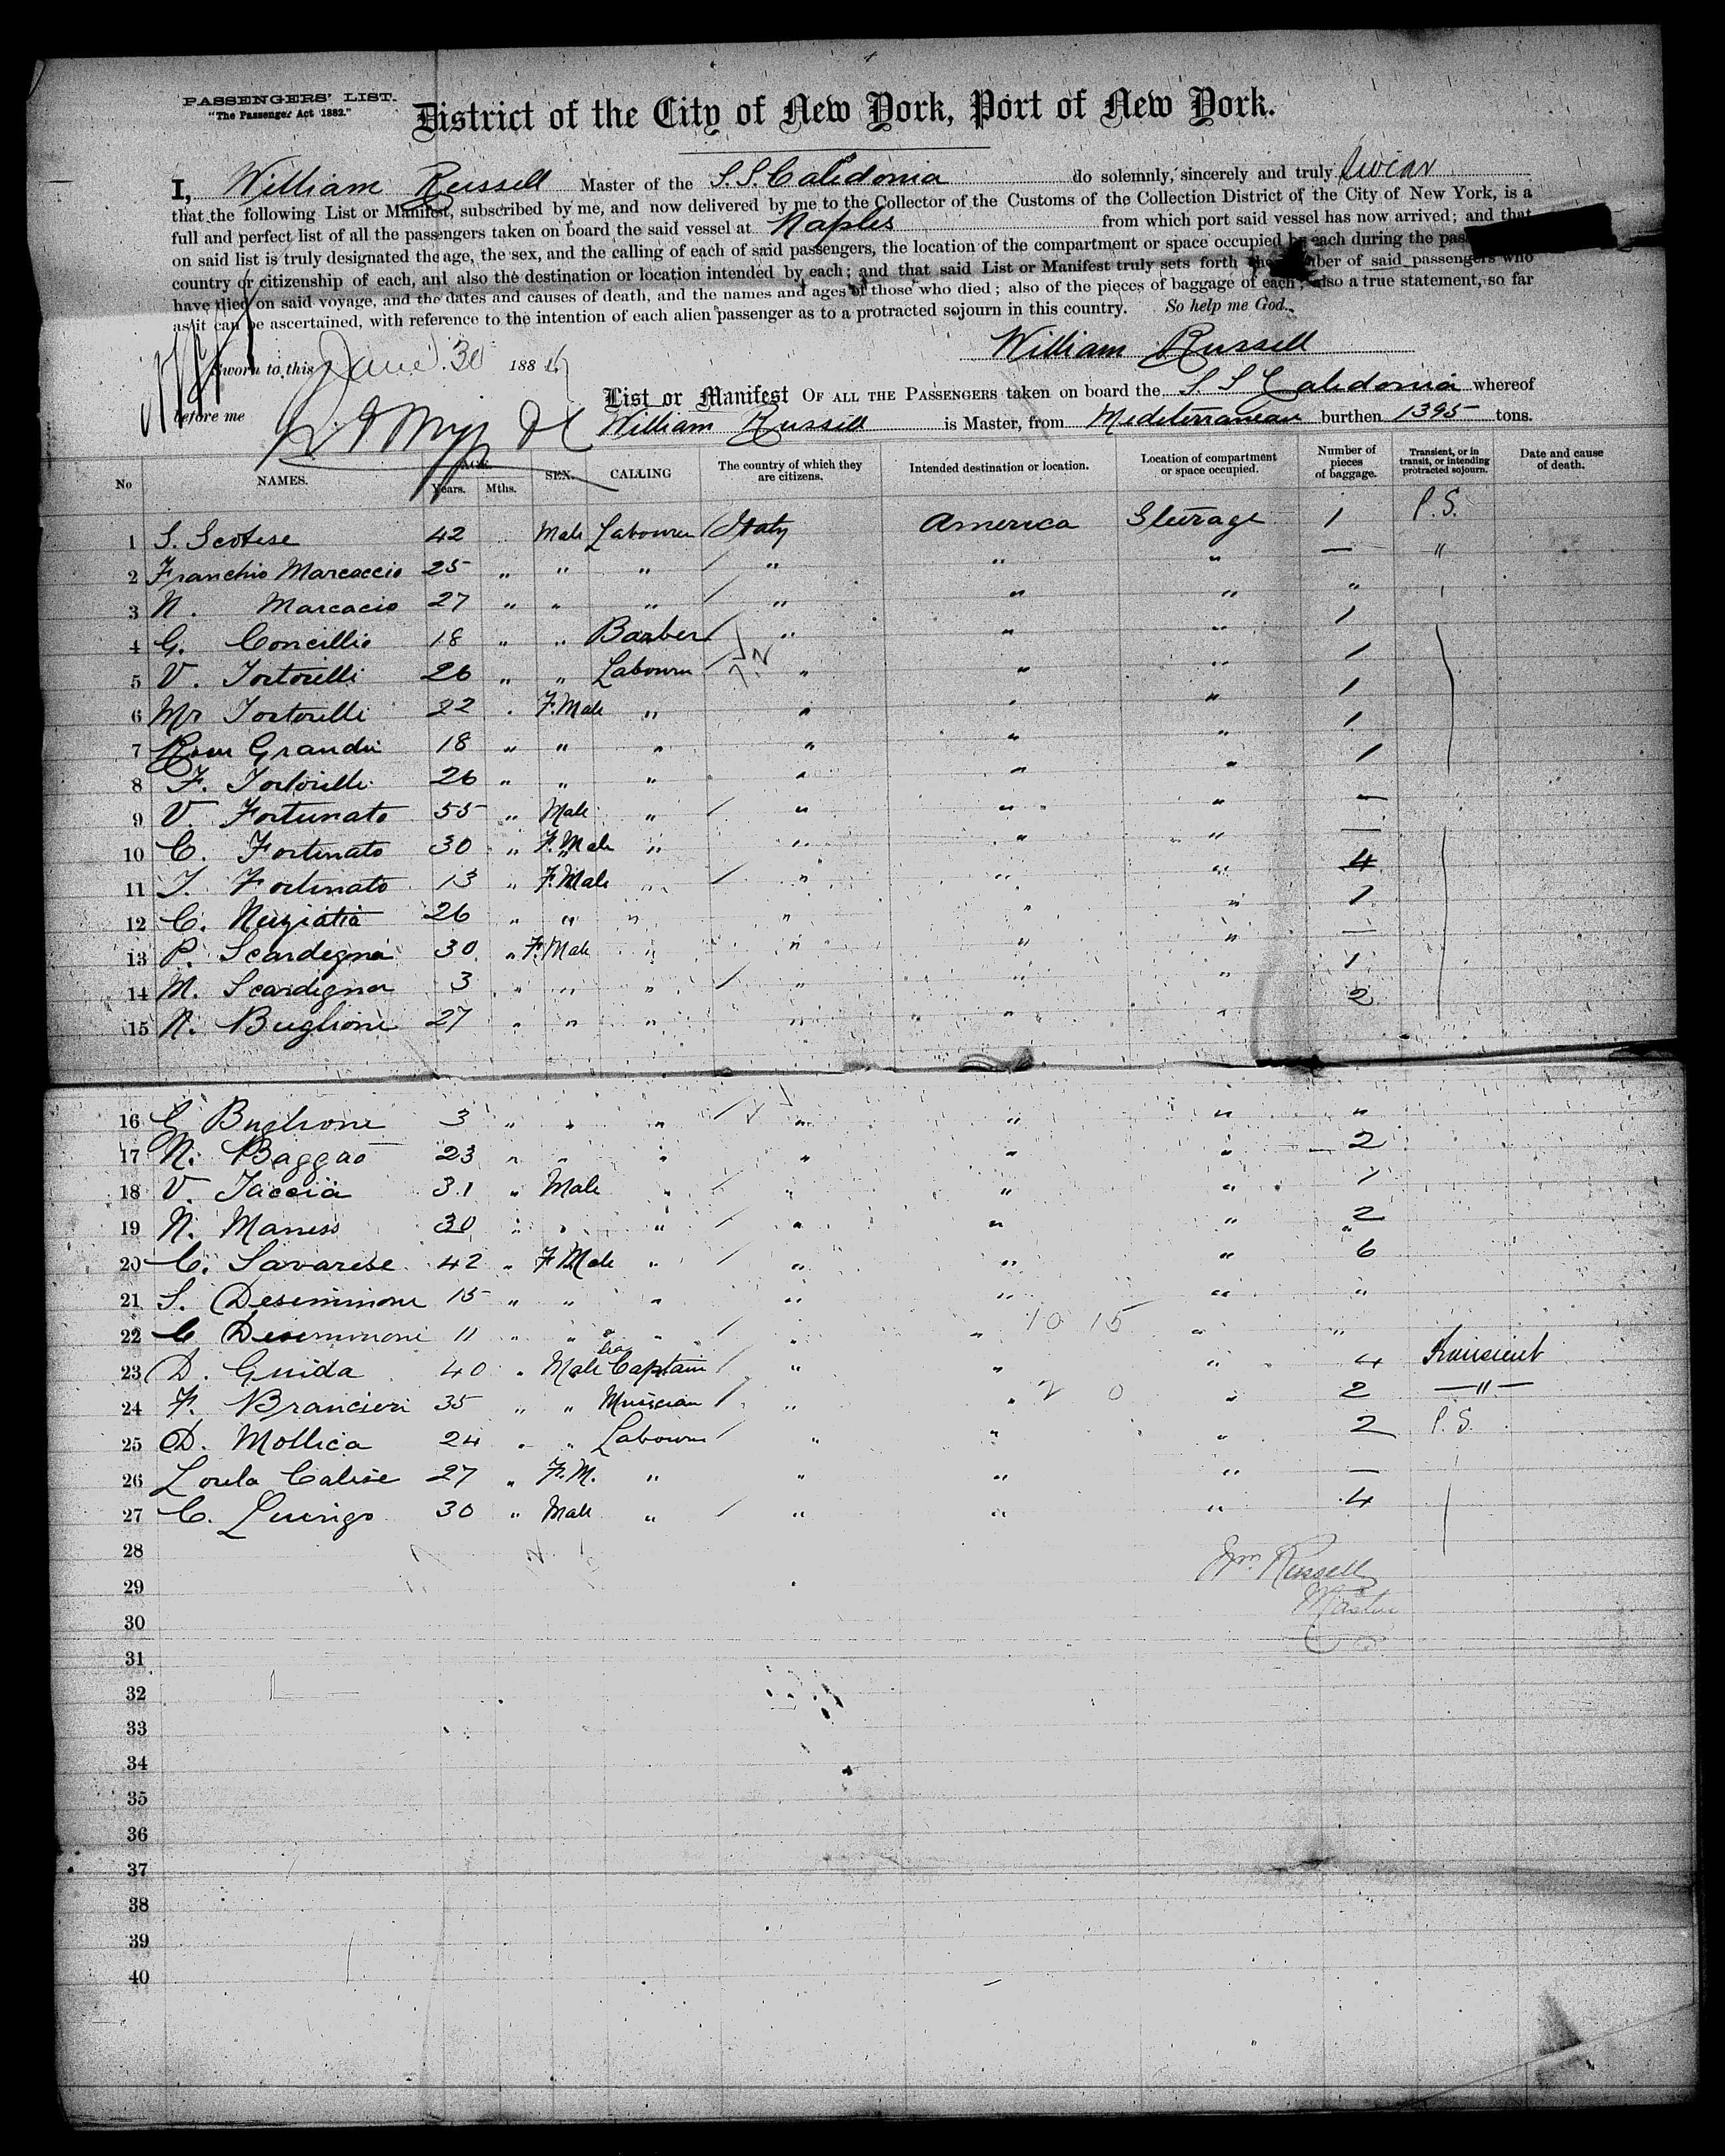 PASSENGERS' LIST.
"The Passenger Act 1882."
District of the City of New York, Port of New York.
I, William Russell Master of the S.S. Caledonia do solemnly, sincerely and truly swear
that the following List or Manifest, subscribed by me, and now delivered by me to the Collector of the Customs of the Collection District of the City of New York, is a
full and perfect list of all the passengers taken on board the said vessel at Naples from which port said vessel has now arrived; and that
on said list is truly designated the age, the sex, and the calling of each of said passengers, the location of the compartment or space occupied by each during the
country or citizenship of each, and also the destination or location intended by each; and that said List or Manifest truly sets forth the number of said passengers who
have died on said voyage, and the dates and causes of death, and the names and ages of those who died; also of the pieces of baggage of each; also a true statement, so far
as it can be ascertained, with reference to the intention of each alien passenger as to a protracted sojourn in this country. So help me God.
William Russell
Sworn to this June 30 188
before me
List or Manifest OF ALL THE PASSENGERS taken on board the S S Caledonia whereof
William Russell is Master, from Mediterranean burthen 1395 tons.
No NAMES. AGE. Years. Mths. SEX. CALLING The country of which they are citizens. Intended destination or location. Location of compartment or space occupied. Number of pieces of baggage. Transient, or in transit, or intending protracted sojourn. Date and cause of death.
1 S. Scotese 42 Male Labourer / Italy America Steerage 1 P.S.
2 Franchio Marcaccio 25 " " " / " " " — "
3 N. Marcacio 27 " " " / " " " "
4 G. Concillio 18 " " Barber / " " " 1
5 V. Tortorelli 26 " " Labourer / " " " 1
6 Mr Tortorelli 22 " F.Male " " " " 1
7 Grandi 18 " " " " " " 1
8 F. Tortorelli 26 " " " " " " 1
9 V. Fortunato 55 " Male " / " " " —
10 C. Fortunato 30 " F.Male " " " " —
11 T. Fortunato 13 " F.Male " / " " " 4
12 C. Nuziatia 26 " " " " " " 1
13 P. Scardegna 30 " F.Male " " " " —
14 M. Scardigna 3 " " " / " " " 1
15 N. Buglione 27 " " " " " " 2
16 G Buglione 3 " " " / " " " "
17 N. Baggao 23 " " " " " " 2
18 V. Taccia 31 " Male " / " " " 1
19 N. Maness 30 " " " / " " " 2
20 C. Savarese 42 " F Male " / " " " 6
21 S. Deseminone 15 " " " " " " "
22 C Deseminone 11 " " " / " " 10 15 " "
23 D. Guida 40 " Male Sea Captain / " " " 4 Transient
24 F. Brancieri 35 " " Musician / " " 2 0 " 2 — " —
25 D. Mollica 24 " " Labourer / " " " 2 P.S.
26 Loula Calise 27 " F.M. " " " " —
27 C. Luongo 30 " Male " / " " " 4
28
Wm Russell
29
Master
30
31
32
33
34
35
36
37
38
39
40